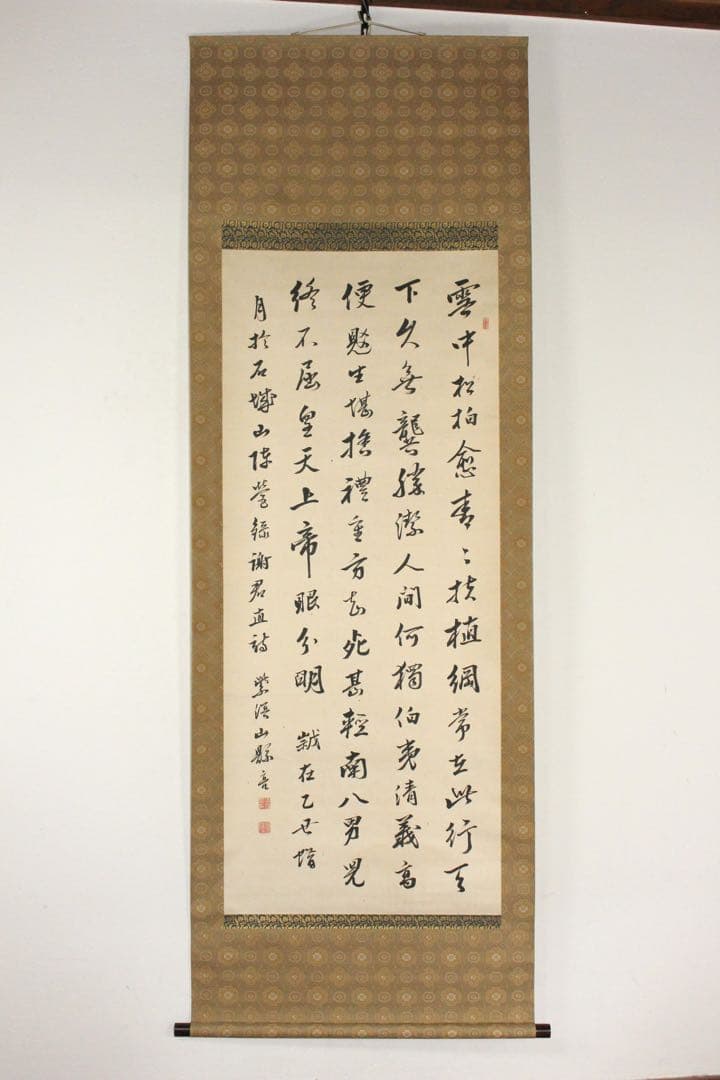 雪中松柏愈青々扶植綱常在此行天
下久無龔勝潔人間何獨伯夷清義高
便覺生堪捨禮重方知死甚輕南八男兒
終不屈皇天上帝眼分明 歳在乙丑蜡
月於石城山陣營録謝君直詩 紫溟山縣